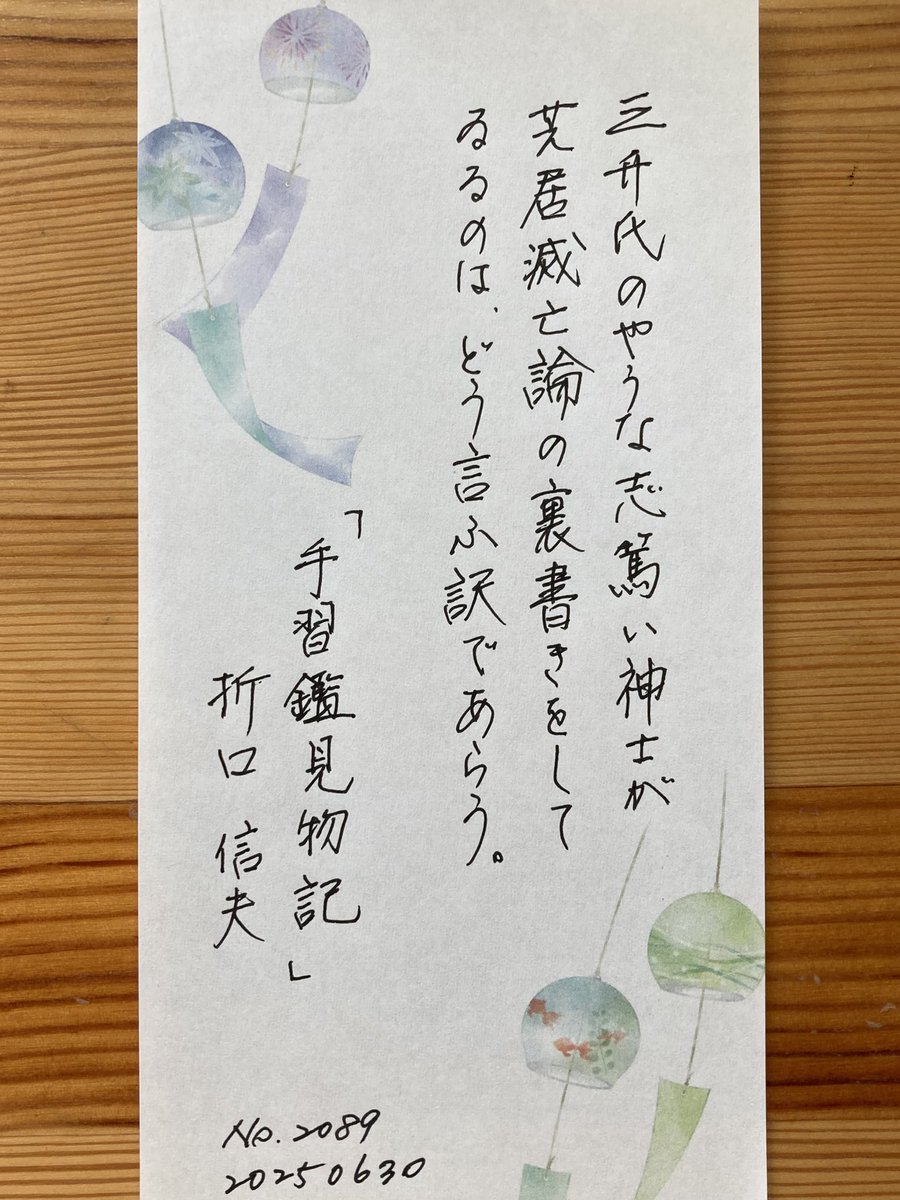 三井氏のやうな志篤い紳士が
芝居滅亡論の裏書きをして
ゐるのは、どう言ふ訳であらう。
「手習鑑見物記」
折口信夫
No.2089
20250630